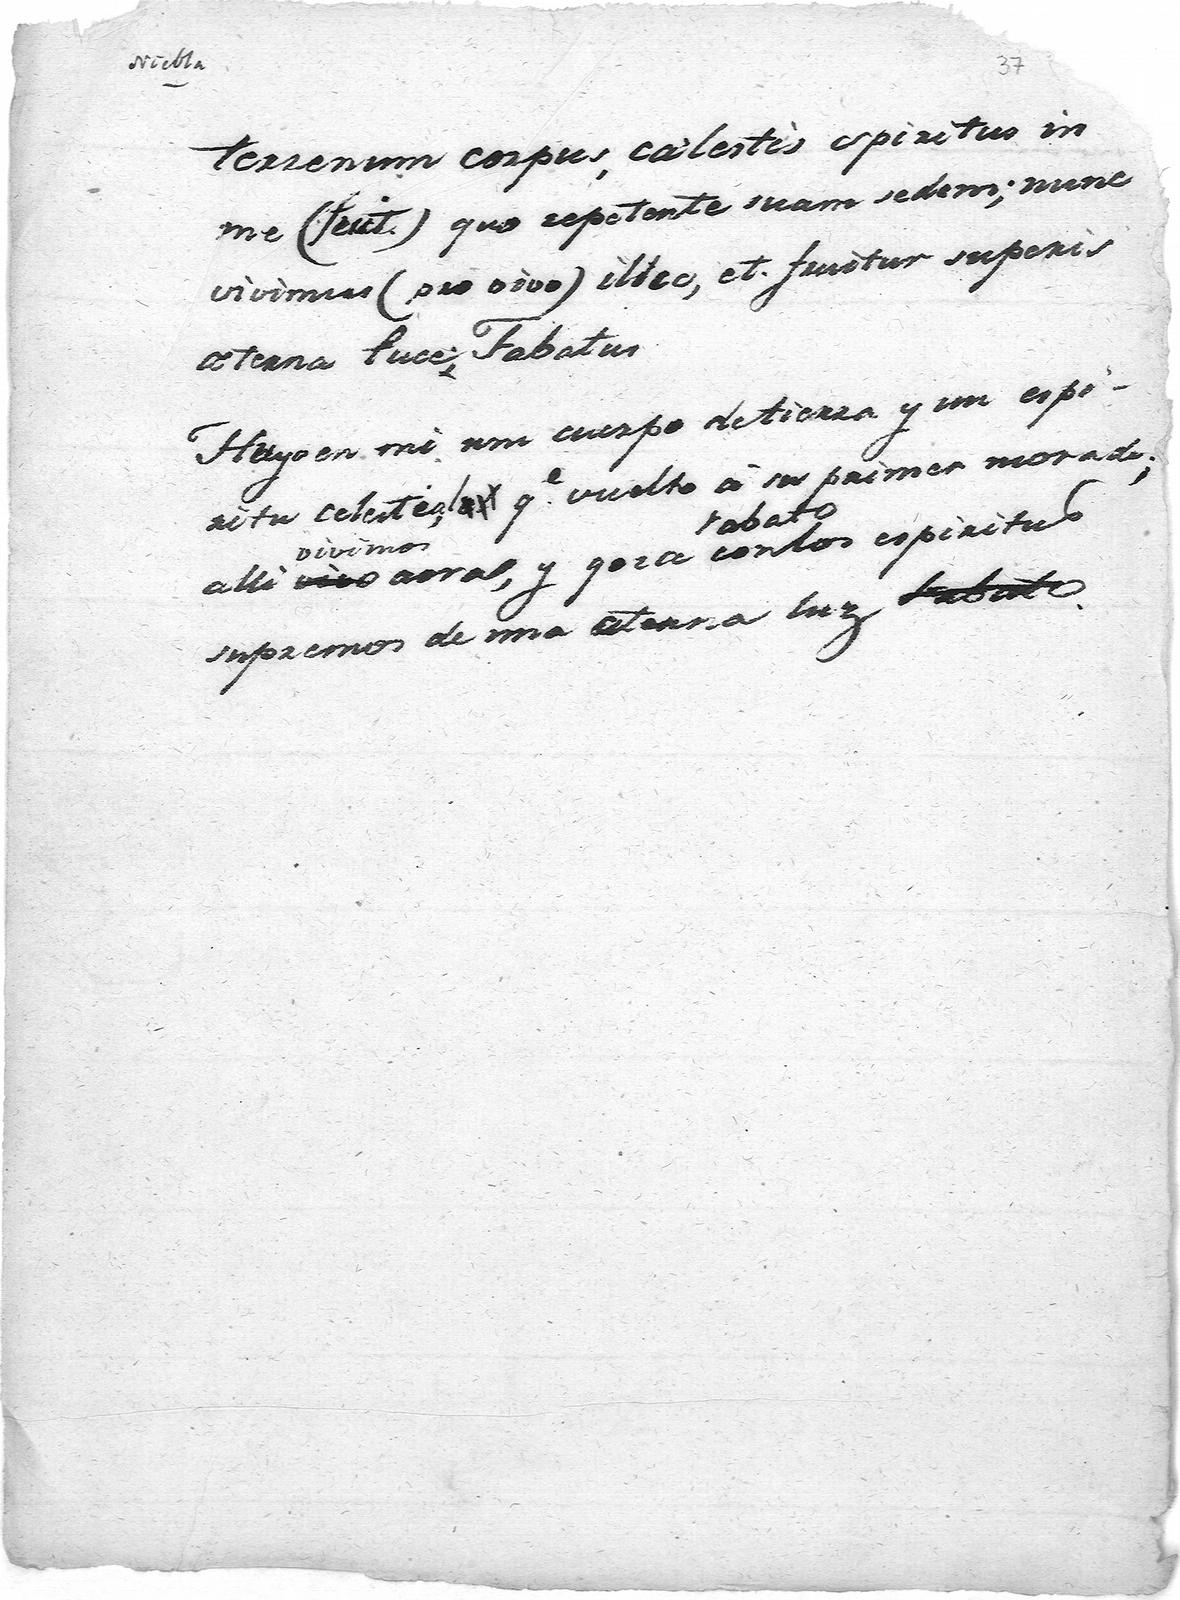 Niebla
37
terrenum corpus, cælestis spiritus in
me (fuit.) quo repetente suam sedem; nunc
vivimus (pro vivo) illic, et fruitur superis
æterna luce, Fabatus
Hayo en mi um cuerpo de tierra y un espi-
ritu celeste, q.e vuelto â su primera morada;
vivimos Fabato
alli vivo aora, y goza con los espiritus
supremos de una eterna luz Fabato.